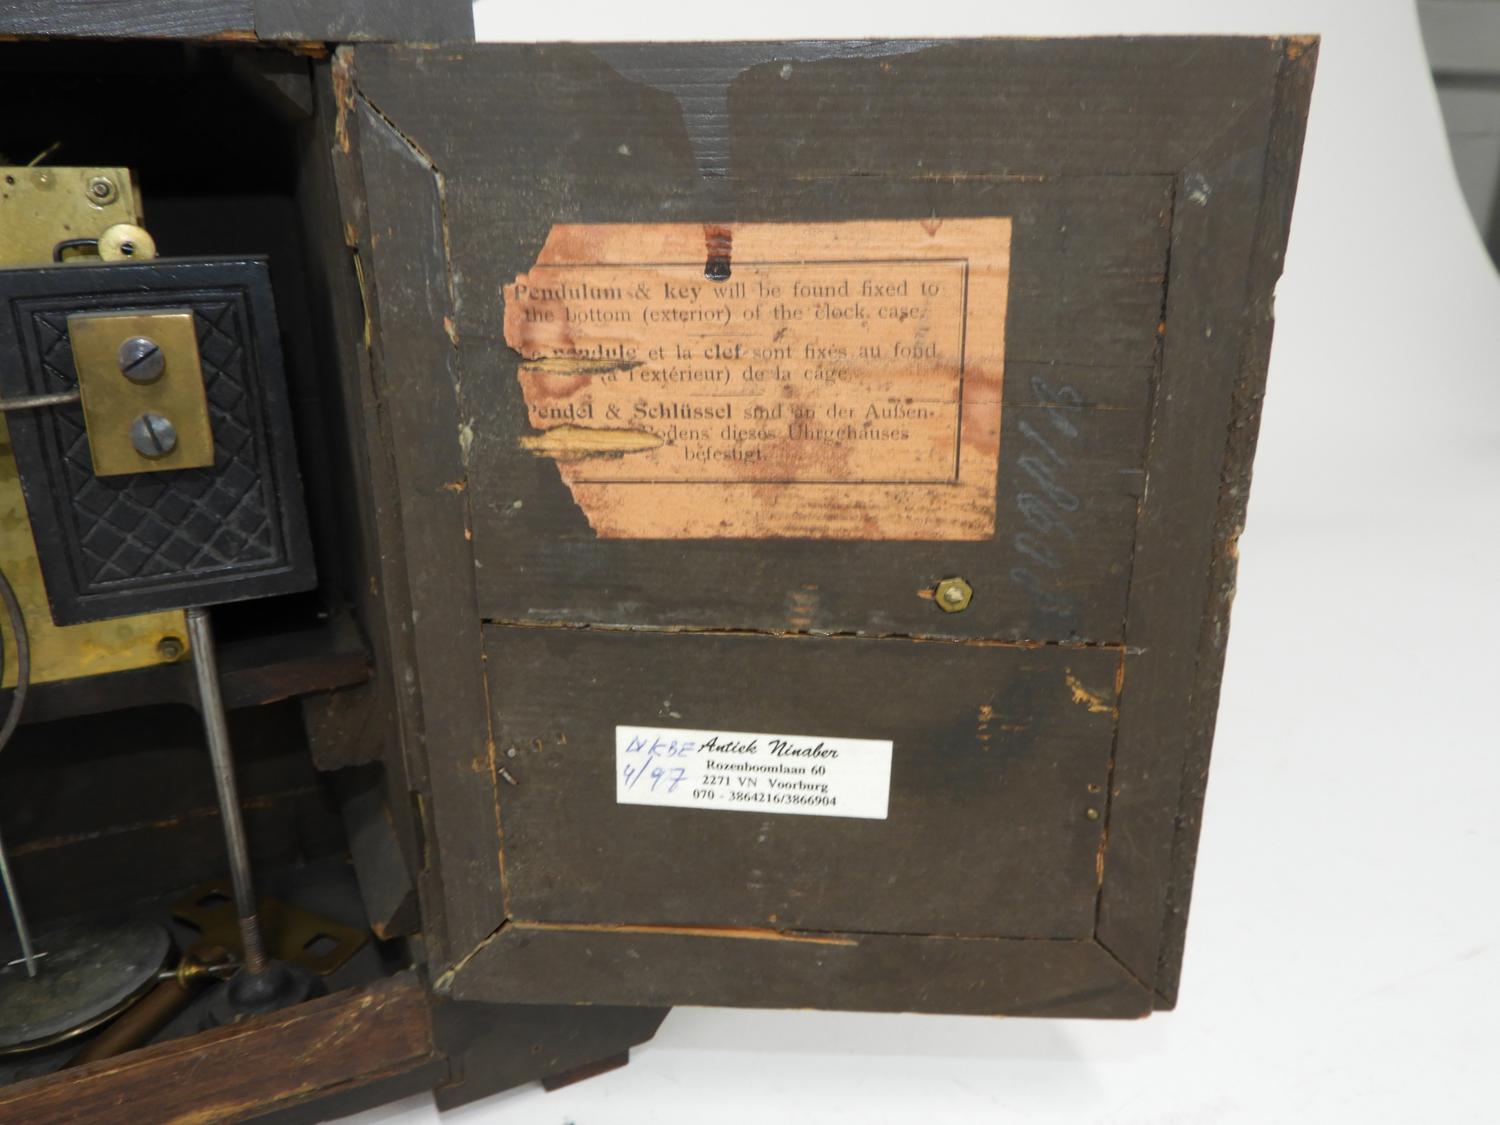 Pendulum & key will be found fixed to
the bottom (exterior) of the clock case.
pendule et la clef sont fixés au fond
(à l'extérieur) de la cage.
Pendel & Schlüssel sind an der Außen-
Bodens dieses Uhrgehäuses
befestigt.
Antiek Ninaber
Rozenboomlaan 60
2271 VN Voorburg
070 - 3864216/3866904
4/97